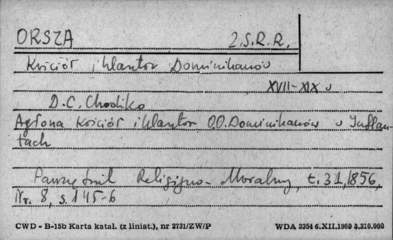 ORSZA Z.S.R.R.
Kościół i klasztor Dominikanów
XVII-XIX w
D.C. Chodźko
Agłona Kościół i klasztor OO.Dominikanów w Inflan-
tach
Pamiętnik Religijno-Moralny, t.31,1856,
Nr. 8, s.145-6
CWD - B-15b Karta katal. (z liniat.), nr 2731/ZW/P WDA 3354 6.XII.1960 3.310.000